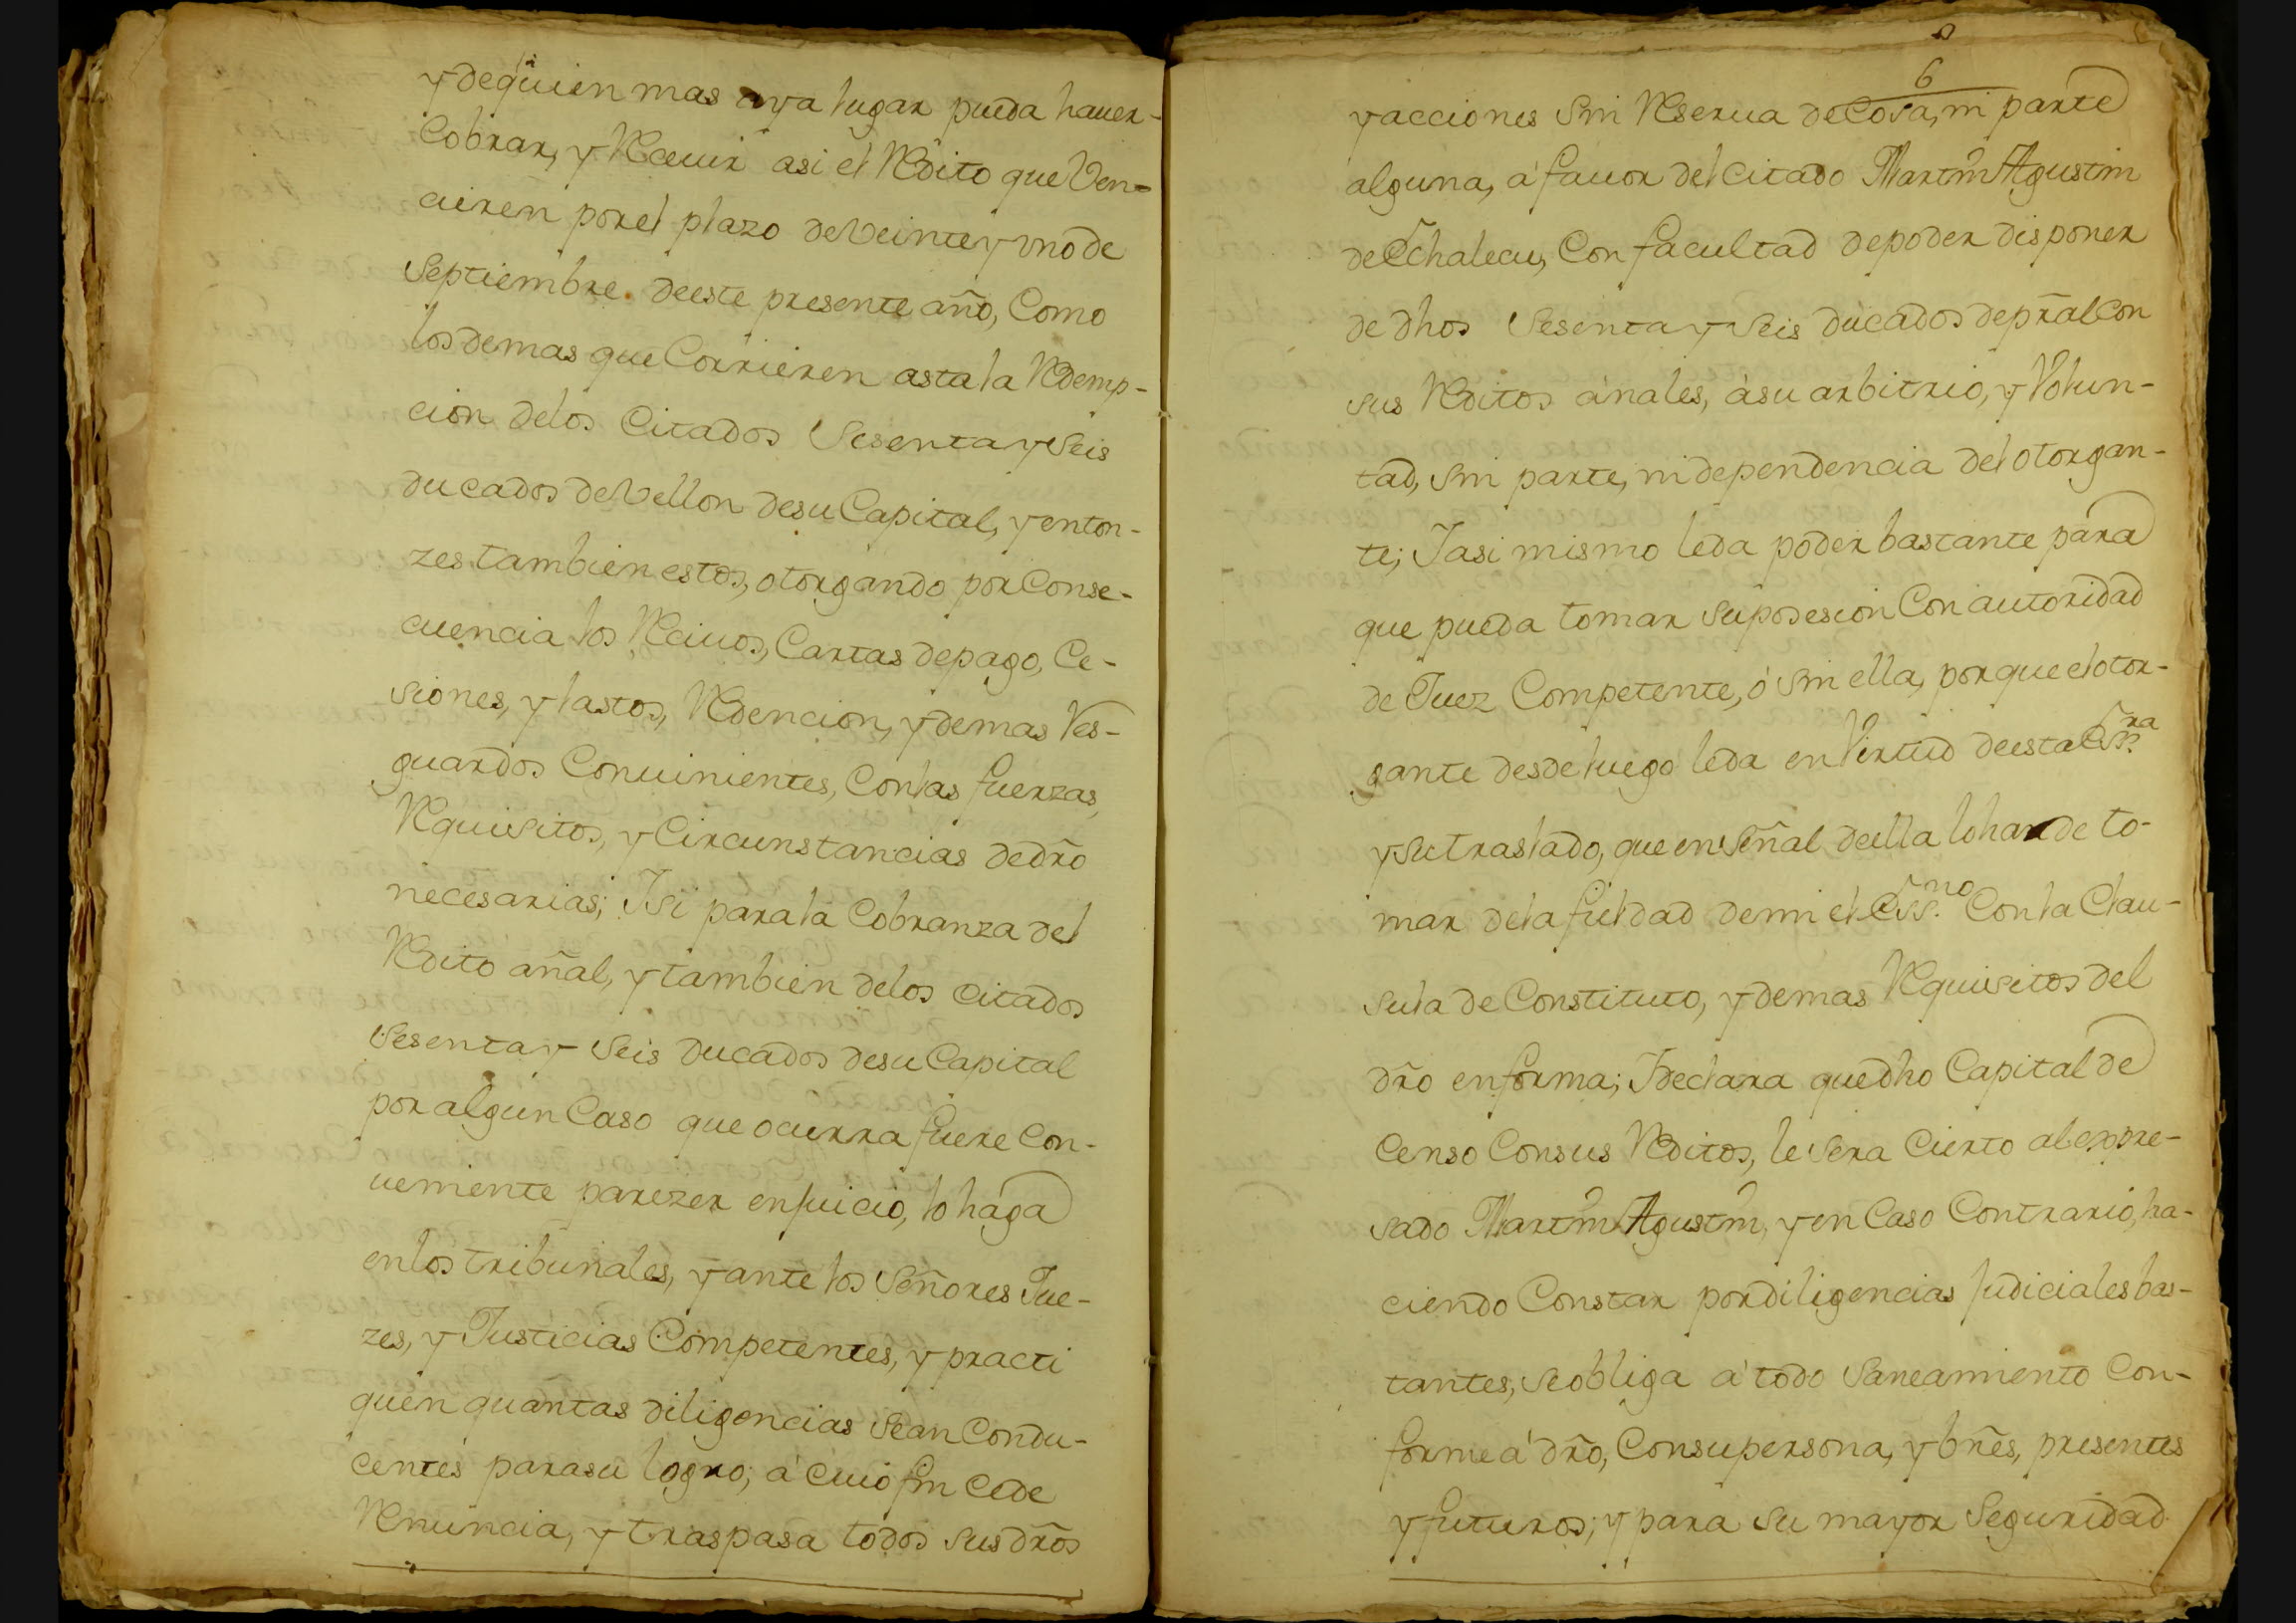 y de quien mas aya lugar pueda hauer-
Cobrar, y Receuir asi el Redito que Ven-
cieren por el plazo de Veinte y uno de
Septiembre deeste presente año, Como
los demas que Corrieren asta la Redemp-
cion delos Citados Sesenta y Seis
ducados de Vellon desu Capital, y enton-
zes tambien estos, otorgando por Conse-
cuencia los Reciuos, Cartas depago, Ce-
siones, y lastos, Redencion, y demas Res-
guardos Conuinientes, Con las fuerzas,
Requisitos, y Circunstancias de dr̃o
necesarias; I si para la Cobranza del
Redito añal, y tambien delos citados
Sesenta y Seis ducados desu Capital
por algun Caso que ocurra fuere Con-
ueniente parezer en juicio, lo haga
en los tribunales, y ante los Señores Jue-
zes, y Justicias Competentes, y practi
quen quantas diligencias Sean Condu-
centes para su logro; á cuio fin Cede
Renuncia, y traspasa todos sus dr̃os
6
y acciones Sin Reserua de Cosa, ni parte
alguna, á fauor del citado Martin Agustin
de Echalecu, Con facultad de poder disponer
de dhos Sesenta y Seis ducados de prãl con
sus Reditos ánales, á su arbitrio, y Volun-
tad, Sin parte, ni dependencia del otorgan-
te; I asi mismo le da poder bastante para
que pueda tomar su posesion Con autoridad
de Juez Competente, ó Sin ella, por que el otor-
gante desde luego le da en Virtud de esta Ess.ra
y su traslado, que en Señal de ella lo han de to-
mar de la fieldad de mi el Ess.no Con la Clau-
sula de Constituto, y demas Requisitos del
dr̃o en forma; I declara que dho Capital de
Censo Con sus Reditos, le Sera Cierto al expre-
sado Martin Agustin, y en Caso Contrario, ha-
ciendo Constar por diligencias Judiciales bas-
tantes, se obliga á todo Saneamiento Con-
forme á dr̃o, Con su persona, y bñes, presentes
y futuros; y para su mayor Seguridad